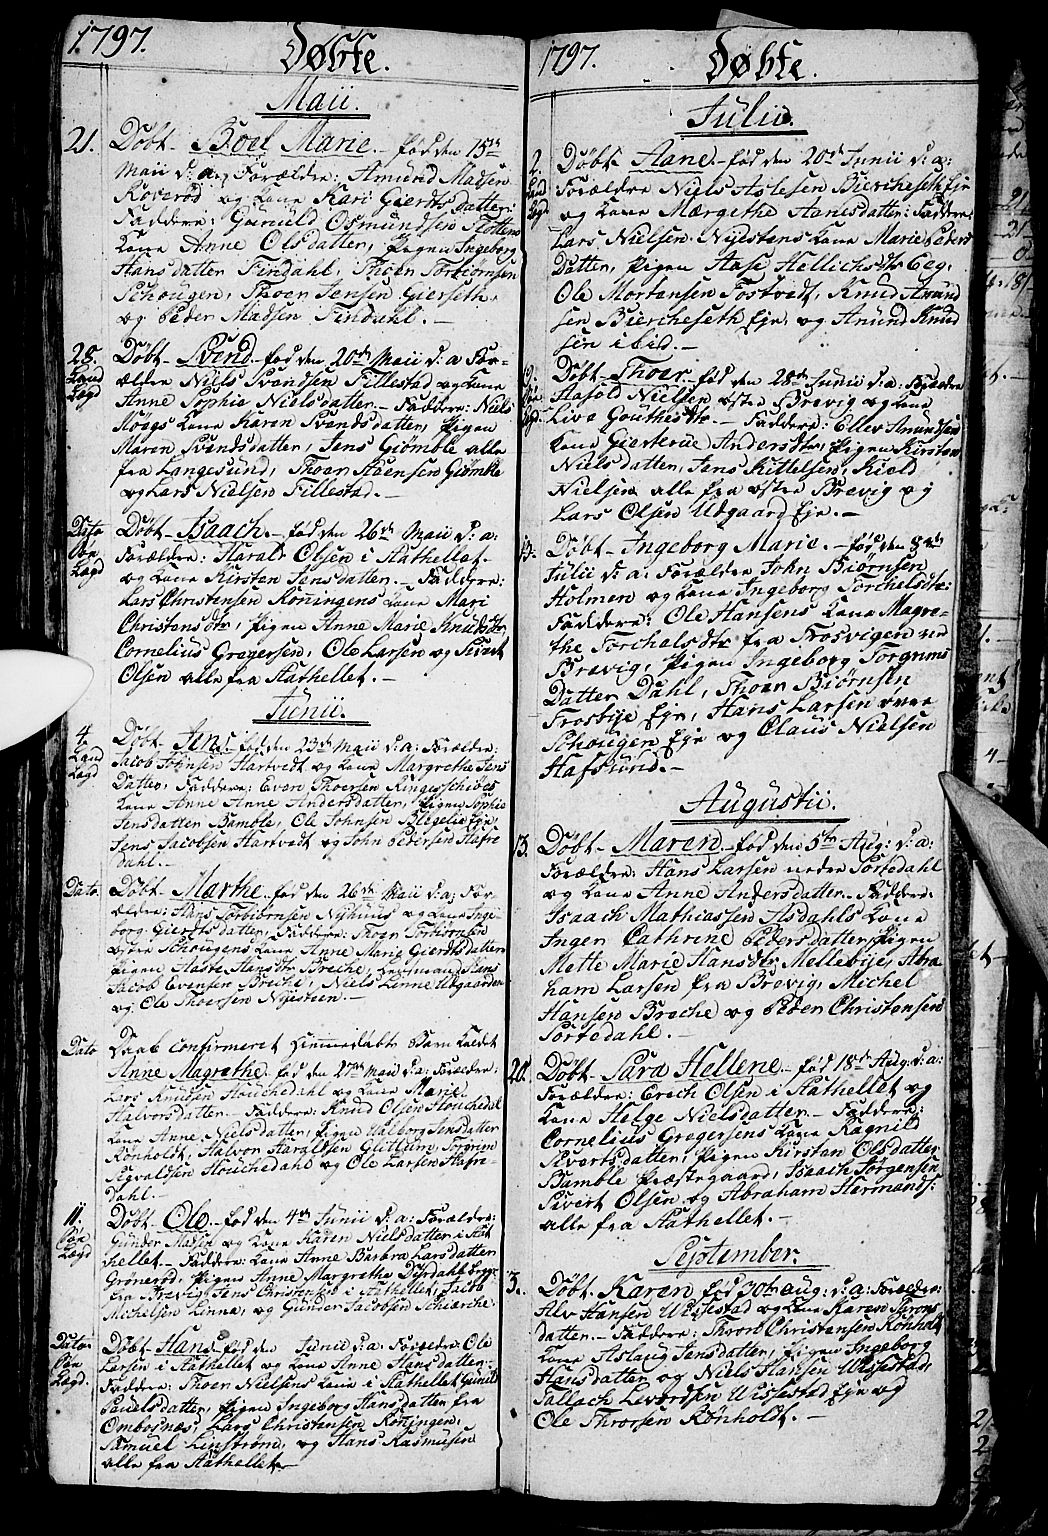 1797.
Døbte.
Maii.
21. Døbt Boel Marie. fød den 15de
Maii d: a: Forældre: Amund Madsen
Roverød og Kone Kari Gierdts datter:
Faddere: Gunuld Osmundsen Flottens
Kone Anne Olsdatter, Pigen Ingeborg
Hansdatter Findahl, Thoer Torbiørnsen
Schougen, Thoer Jensen Gierseth,
og Peder Madsen Findahl.
28. Døbt Svend fød den 20de Maii d: a For-
Land ældre Niels Svendsen Tillestad og Kone
Lægd Anne Sophie Nielsdatter. Faddere: Niels
Møegs Kone Karen Svendsdatter, Pigen
Maren Svendsdatter, Jens Giømble alle
fra Langesund, Thoer Steensen Giømble
og Lars Nielsen Tillestad.
Dato Døbt Isaach. fød den 26de Maii d: a:
Søe Forældre: Harald Olsen i Stathellet
Lægd og Kone Kirsten Jensdatter. Faddere:
Lars Christensen Køningens Kone Mari
Christensdtr, Pigen Anne Marie Knudsdtr
Cornelius Gregersen, Ole Larsen og Sivert
Olsen alle fra Stathellet.
Junii.
4. Døbt Jens fød den 23de Maii d: a: Forældre:
Land Jacob Johnsen Hartvedt og Kone Margrethe Jens
Lægd Datter, Faddere: Even Thoersen Ringesschiøes
Kone Anne Anne Andersdatter, Pigen Sophie
Jensdatter Bamble, Ole Johnsen Blegelie Eje,
Jens Jacobsen Hartvedt og John Pedersen Hafre
dahl.
Dato Døbt Marthe fød den 26de Maii d: a: For-
ældre: Hans Torbiørnsen Nyhuus og Kone Inge
borg Gierdtsdatter, Faddere: Thoer Torbiørnsen
Schougens Kone Anne Marie Gierdtsdatter
Pigen Aaste Hansdtr Breche, Hans
Jacob Evensen Breche, Niels Linne Udgaarden
og Ole Thoersen Nysteen.
Dato Daab Confirmeret Hiemmedøbt Barn kaldet
Anne Magrethe fød den 27de Maii d: a: Forældre.
Lars Knudsen Houchedahl og Kone Marie
Halvorsdatter. Faddere: Knud Olsen Houchedal
Kone Anne Nielsdatter, Pigen Walborg Jensdatter
Rønholdt, Halvor Haraldsen Torgrim
Segvaldsen Houchedahl og Ole Larsen Hafre-
Dahl.
11. Døbt Ole fød den 4de Junii d: a: Forældre:
Søe Gunder Madsen og Kone Karen Nielsdatter i Stat
Lægd hellet. Faddere: Kone Anne Barbra Larsdatter
Grønerød, Pigen Anne Margrethe Dyrdahl begge
fra Brevig, Jens Christensen i Stathellet, Jacob
Michelsen Linna, og Gunder Jacobsen Schierche.
Dato Døbt Hans fød den Junii d: a: Forældre Ole
Søe Larsen i Stathellet og Kone Anne Hansdatter:
Lægd. Faddere: Thoer Nielsens Kone i Stathellet Gunild
Povelsdatter, Pigen Ingeborg Hansdatter fra
Ombosnæs, Lars Christensen Køningen,
Samuel Lindstrøm, og Hans Rasmusen
alle fra Stathellet.
1797.
Døbte.
Julii.
2. Døbt Aane. fød den 20de Junii d: a:
Land Forældre Niels Aslesen Biercheseth Eje
Lægd og Kone Mærgethe Hansdatter: Faddere:
Lars Nielsen Nyestens Kone Marie Peders
Datter, Pigen Aase Hellichsdtr Eeg.
Ole Mortensen Tostvedt, Knud Amund
sen Biercheseth Eje, og Amund Knud
sen ibid.
Døbt Thoer. fød den 28de Junii d: a: Forældre
Hafold Nielsen østre Brevig og Kone
Live Gouthesdtr. Faddere: Ellev Amundsen
Kone Gierterue Andersdtr, Pigen Kirsten
Nielsdatter, Jens Kittelsen, Kield
Nielsen alle fra østre Brevig og
Lars Olsen Udgaard Eje.
Døbt Ingeborg Marie. fød den 8de
Julii d: a: Forældre John Biørnsen
Holmen og Kone Ingeborg Torchelsdtr:
Faddere: Ole Hansens Kone Magre-
the Torchelsdtr fra Trosvigen ved
Brevig, Pigen Ingeborg Torgrims
Datter Dahl, Thoer Biørnsen
Trosbye Eje, Hans Larsen
Schougen Eje og Claus Nielsen
Hafsund.
Augustii.
13. Døbt Maren fød den 5te Aug: d: a:
Forældre: Hans Larsen nedre Tortedahl
og Kone Anne Andersdatter. Faddere:
Isaach Mathiassen Asdahls Kone
Inger Cathrine Pedersdatter, Pigen
Mette Marie Hansdtr Mellebye, Abra
ham Larsen fra Brevig, Michel
Hansen Breche og Peder Christensen
Tortedahl.
20. Døbt Sara Hellene fød 18de Aug: d: a:
Forældre: Erech Olsen i Stathellet og
Kone Helge Nielsdatter. Faddere:
Cornelius Gregersens Kone Ragnild
Sivertsdatter, Pigen Kirsten Olsdatter
Bamble Præstegaard, Isaach Jørgensen
Sivert Olsen og Abraham Hermands:
alle fra Stathellet.
September.
3. Døbt. Karen fød 30te Aug. d: a: Forældre:
Alv Hansen Wissestad og Kone Karen Sirons
datter. Faddere: Thron Christensen Rønholt
Kone Aslaug Jensdatter, Pigen Ingeborg
Hansdatter og Niels Hansen Wissestad,
Tallach Levordsen Wissestad Eje og
Ole Throrsen Rønholdt.